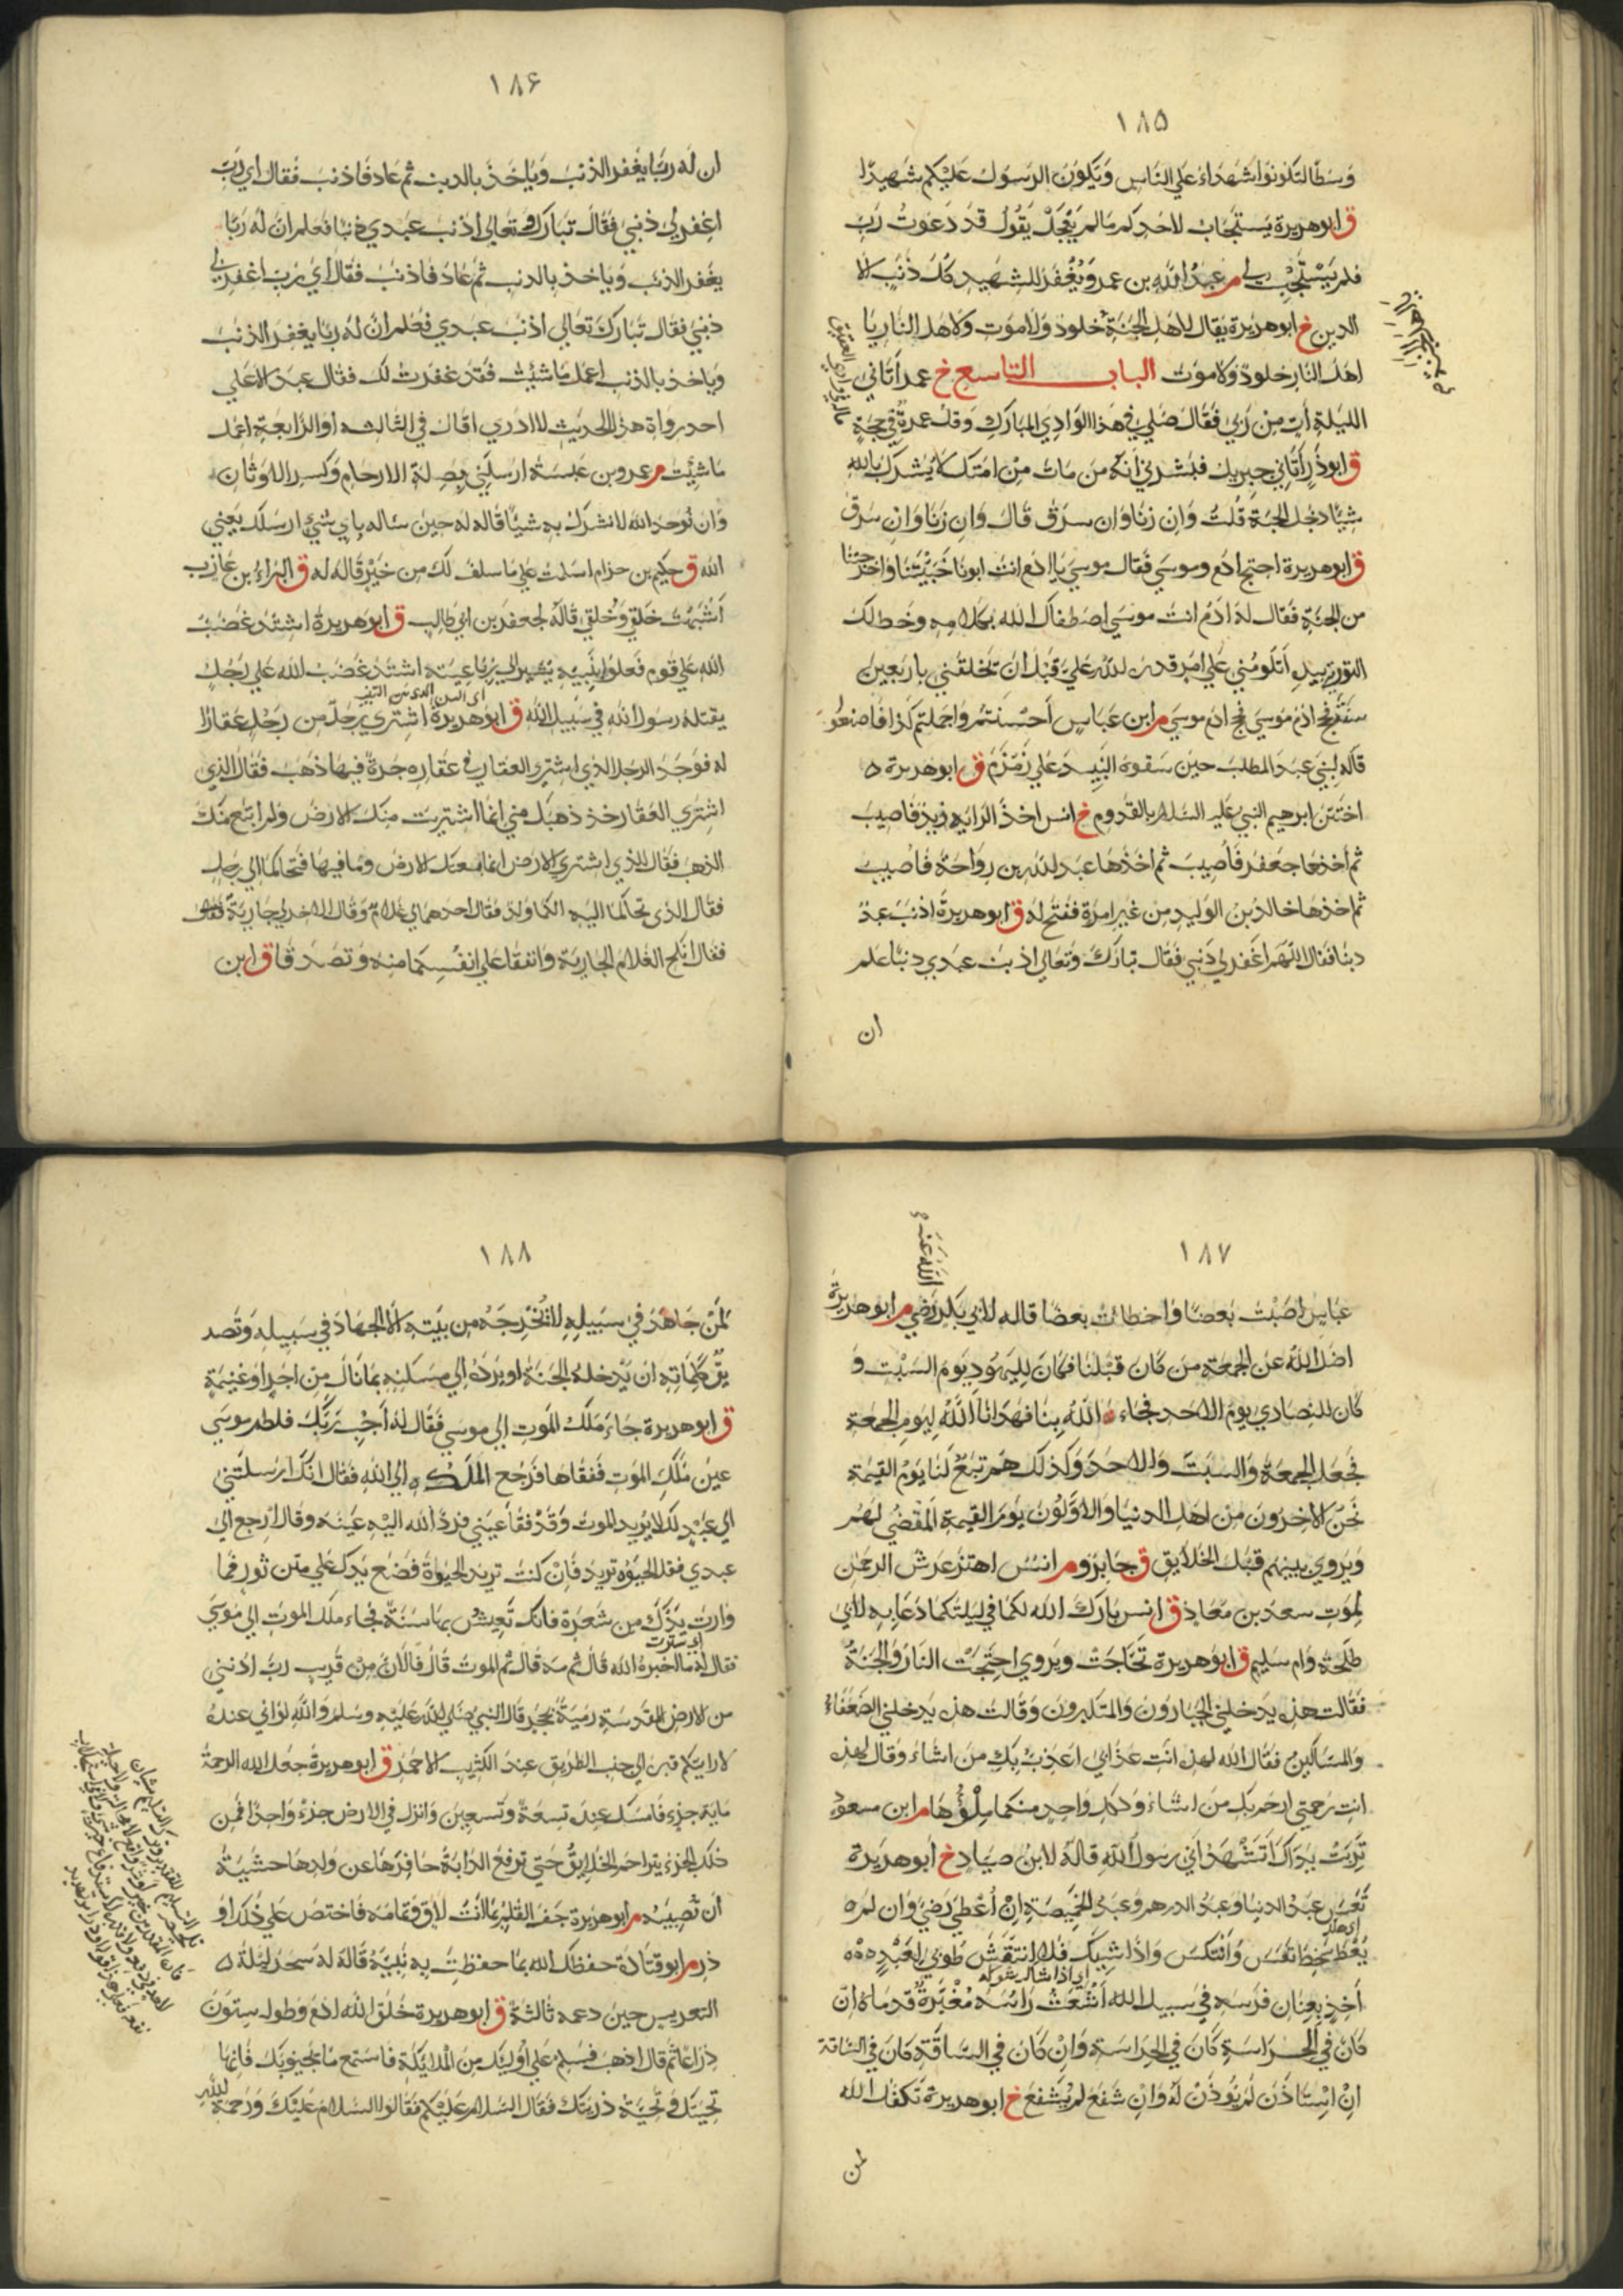 ١٨٥
وسطا لتكونوا شهداء علي الناس ويكون الرسول عليكم شهيدا
ق ابوهريرة يستجاب لاحدكم مالم يعجل يقول قد دعوت ربي
فلم يستجب لي م عبد الله بن عمرو يغفر للشهيد كل ذنب الا
الدين خ ابوهريرة يقال لاهل الجنة خلود ولا موت ولاهل النار يا
اهل النار خلود ولا موت الباب التاسع خ عمر أتاني
الليلة آت من ربي فقال صلي في هذا الوادي المبارك وقل عمرة في حجة
ق ابوذر أتاني جبريل فبشرني أنه من مات من امتك لا يشرك بالله
شيئا دخل الجنة قلت وان زنا وان سرق قال وان زنا وان سرق
ق ابوهريرة احتج ادم وموسي فقال موسي يا ادم انت ابونا خيبتنا واخرجتنا
من الجنة فقال له ادم انت موسي اصطفاك الله بكلامه وخط لك
التورية بيده أتلومني علي امر قدره الله علي قبل ان تخلقني باربعين
سنة فحج ادم موسي فحج ادم موسي م ابن عباس أحسنتم واجملتم كذا فاصنعوا
قاله لبني عبد المطلب حين سقوه النبيذ علي زمزم ق ابوهريرة
اختتن ابرهيم النبي عليه السلام بالقدوم خ انس اخذ الراية زيد فاصيب
ثم أخذها جعفر فأصيب ثم اخذها عبد الله بن رواحة فاصيب
ثم اخذها خالد بن الوليد من غير امرة ففتح له ق ابوهريرة اذنب عبد
ذنبا فقال اللهم اغفر لي ذنبي فقال تبارك وتعالي اذنب عبدي ذنبا علم
ان
١٨۶
ان له ربا يغفر الذنب وياخذ بالذنب ثم عاد فاذنب فقال اي رب
اغفر لي ذنبي فقال تبارك وتعالي اذنب عبدي ذنبا فعلم ان له ربا
يغفر الذنب وياخذ بالذنب ثم عاد فاذنب فقال اي رب اغفر لي
ذنبي فقال تبارك تعالي اذنب عبدي فعلم ان له ربا يغفر الذنب
وياخذ بالذنب اعمل ما شئت فقد غفرت لك فقال عبد الاعلي
احد رواة هذا الحديث لا ادري اقال في الثالثه او الرابعة اعمل
ما شئت م عمرو بن عبسة ارسلني بصلة الارحام وكسر الاوثان
وان توحد الله لا نشرك به شيئا قاله له حين ساله باي شيء ارسلك يعني
الله ق حكيم بن حزام اسلمت علي ما سلف لك من خير قاله له ق البراء بن عازب
أشبهت خلقي وخلقي قاله لجعفر بن ابي طالب ق ابوهريرة اشتد غضب
الله علي قوم فعلوا بنبيه يشير الي رباعيته اشتد غضب الله علي رجل
يقتله رسول الله في سبيل الله ق ابوهريرة اشتري رجل من رجل عقارا
له فوجد الرجل الذي اشتري العقار في عقاره جرة فيها ذهب فقال الذي
اشتري العقار خذ ذهبك مني انما اشتريت منك الارض ولم ابتع منك
الذهب فقال الذي اشتري الارض انما بعتك الارض وما فيها فتحاكما الي رجل
فقال الذي تحاكما اليه الكما ولد فقال احدهما لي غلام وقال الاخر لي جارية
فقال انكح الغلام الجارية وانفقا علي انفسكما منه وتصدقا ق ابن
١٨٧
عباس اصبت بعضا واخطات بعضا قاله لابي بكر رضي م ابوهريرة
الله عنه
اضل الله عن الجمعة من كان قبلنا فكان لليهود يوم السبت و
كان للنصاري يوم الاحد فجاء الله بنا فهدانا الله ليوم الجمعة
فجعل الجمعة والسبت والاحد وكذلك هم تبع لنا يوم القيمة
نحن الاخرون من اهل الدنيا والاولون يوم القيمة المقضي لهم
ويروي بينهم قبل الخلايق ق جابر وم انس اهتز عرش الرحمن
لموت سعد بن معاذ ق انس بارك الله لكما في ليلتكما دعا به لابي
طلحة وام سليم ق ابوهريرة تحاجت ويروي احتجت النار والجنة
فقالت هذه يدخلني الجبارون والمتكبرون وقالت هذه يدخلني الضعفاء
والمساكين فقال الله لهذه انت عذابي اعذب بك من اشاء وقال لهذه
انت رحمتي ارحم بك من اشاء ولكل واحد منكما ملؤها م ابن مسعود
تربت يداك أتشهد اني رسول الله قاله لابن صياد خ ابوهريرة
تعس عبد الدنيا وعبد الدرهم وعبد الخميصة إن أعطي رضي وان لم
اي هلك
يعط سخط تعس وانتكس واذا شيك فلا انتقش طوبي لعبد
اي اذا شاك شوكة
أخذ بعنان فرسه في سبيل الله أشعث راسه مغبرة قدماه ان
كان في الحراسة كان في الحراسة وان كان في الساقة كان في الساقة
ان استاذن لم يوذن له وان شفع لم يشفع خ ابوهريرة تكفل الله
لمن
١٨٨
لمن جاهد في سبيله لا تخرجه من بيته الا الجهاد في سبيله وتصد
يق كلماته ان يدخله الجنة او يرده الي مسكنه بما نال من اجر او غنيمة
ق ابوهريرة جاء ملك الموت الي موسي فقال له أجب ربك فلطم موسي
عين ملك الموت ففقاها فرجع الملك الي الله فقال انك ارسلتني
الي عبد لك لا يريد الموت وقد فقا عيني فرد الله اليه عينه وقال ارجع الي
عبدي فقل الحيوة تريد فان كنت تريد الحيوة فضع يدك علي متن ثور فما
وارت يدك من شعرة فانك تعيش بها سنة فجاء ملك الموت الي موسي
اي سترت
فقال له ما اخبره الله قال ثم مه قال ثم الموت قال فالان من قريب رب ادنني
من الارض المقدسة رمية بحجر قال النبي صلي الله عليه وسلم والله لو اني عنده
لاريتكم قبره الي جنب الطريق عند الكثيب الاحمر ق ابوهريرة جعل الله الرحمة
ماية جزء فامسك عنده تسعة وتسعين وانزل في الارض جزء واحدا فمن
ذلك الجزء يتراحم الخلايق حتي ترفع الدابة حافرها عن ولدها خشية
أن تصيبه م ابوهريرة جف القلم بما أنت لاق وتمامه فاختص علي ذلك او
ذر م ابوقتادة حفظك الله بما حفظت به نبيه قاله له سحر ليلة
التعريس حين دعمه ثالثة ق ابوهريرة خلق الله ادم وطوله ستون
ذراعا ثم قال اذهب فسلم علي اوليك من الملائكة فاستمع ما يحيونك فانها
تحيتك وتحية ذريتك فقال السلام عليكم فقالوا السلام عليك ورحمة الله